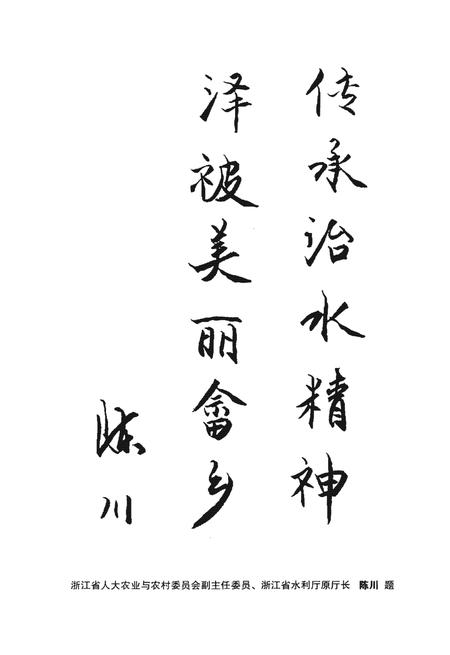 传承治水精神
泽被美丽畲乡
陈川
浙江省人大农业与农村委员会副主任委员、浙江省水利厅原厅长 陈川 题